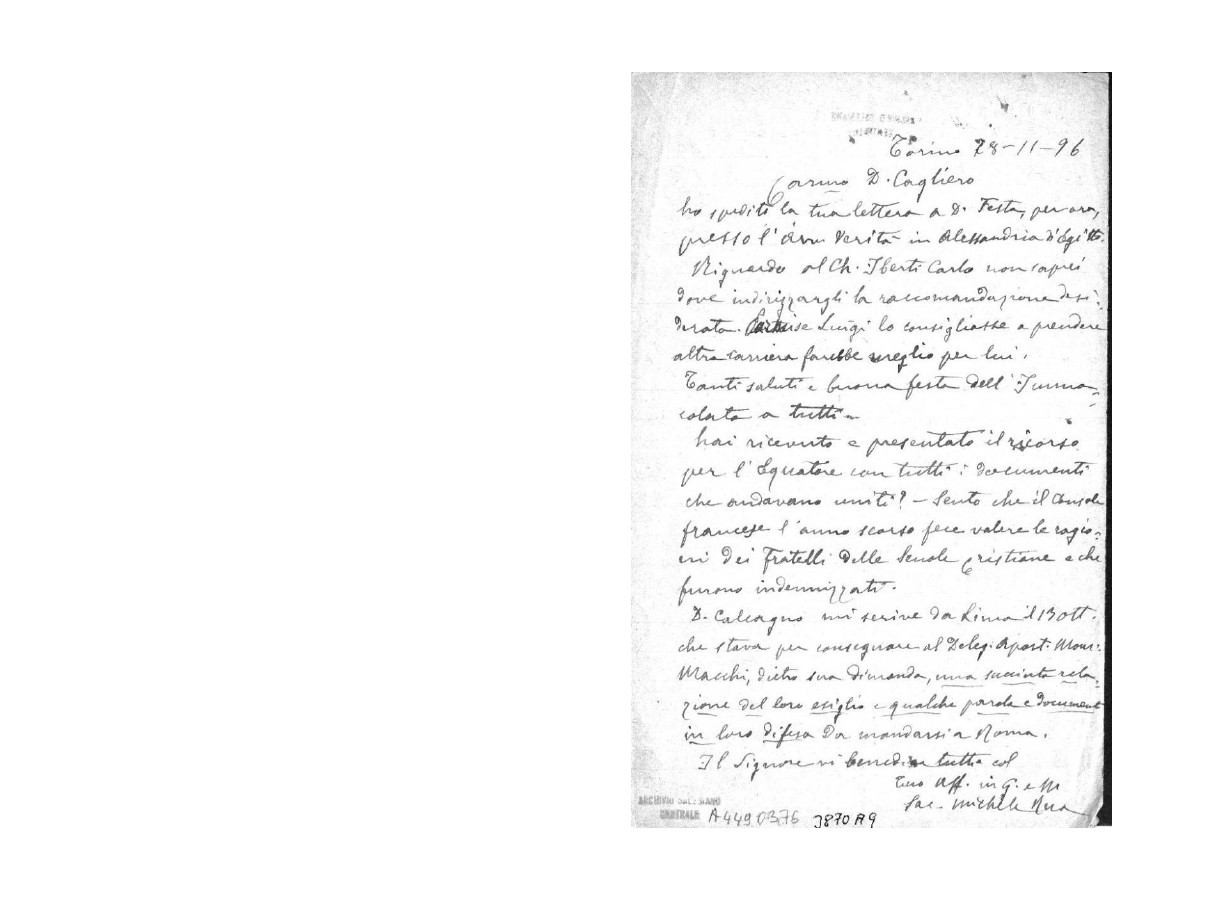 Torino 28-11-96
Carmo D. Cagliero
ho spedito la tua lettera a D. Festa, per ora,
presso l' Avv. Verità in Alessandria d'Egitto.
Riguardo al Ch. Iberti Carlo non saprei
dove indirizzargli la raccomandazione desi-
derata. se Luigi lo consigliasse a prendere
altra carriera farebbe meglio per lui.
Tanti saluti e buona festa dell' Imma-
colata a tutti.
hai ricevuto e presentato il ricorso
per l' Equatore con tutti i documenti
che andavano uniti? - Sento che il Console
francese l' anno scorso fece valere le ragio-
ni dei Fratelli delle Scuole Cristiane e che
furono indennizzati.
D. Calcagno mi scrive da Lima il 13 ott.
che stava per consegnare al Deleg. Apost. Mons.
Macchi, dietro sua dimanda, una succinta rela-
zione del loro esiglio e qualche parola e document
in loro difesa da mandarsi a Roma.
Il Signore vi benedica tutti col
tuo Aff. in G. e M
Sac. Michele Rua
ARCHIVIO SALESIANO
CENTRALE A4490376 3870A9